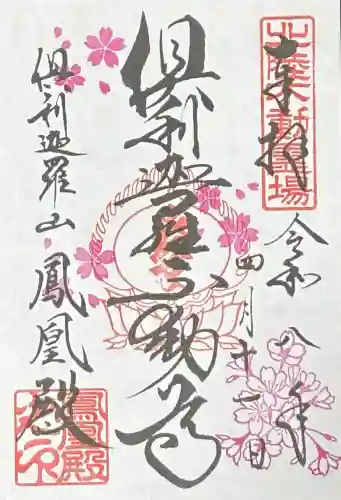 奉拝
北陸不動霊場
令和八年
四月十二日
倶利迦羅不動尊
倶利迦羅山
鳳凰殿